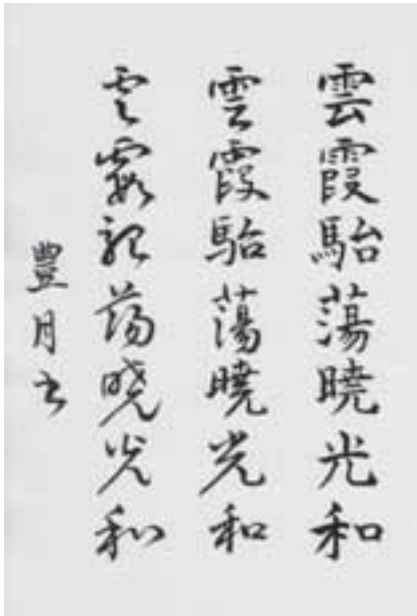 雲霞駘蕩曉光和
雲霞駘蕩曉光和
雲霞駘蕩曉光和
豊月書